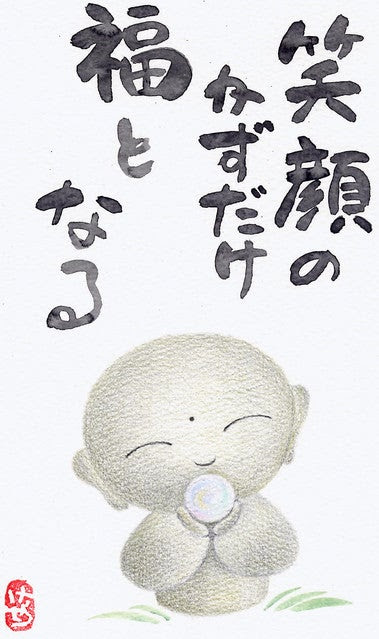 笑顔の
かずだけ
福と
なる